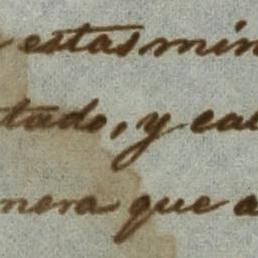 estas min
tado, y cal
nera que a